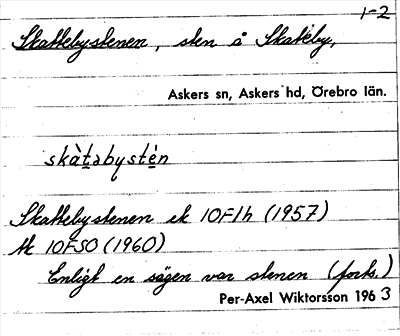 1-2
Skattebystenen, sten å Skatteby,
Askers sn, Askers hd, Örebro län.
skàt̠abysté̠n
Skattebystenen ek 10F1h (1957)
tk 10F50 (1960)
Enligt en sägen var stenen (forts.)
Per-Axel Wiktorsson 1963